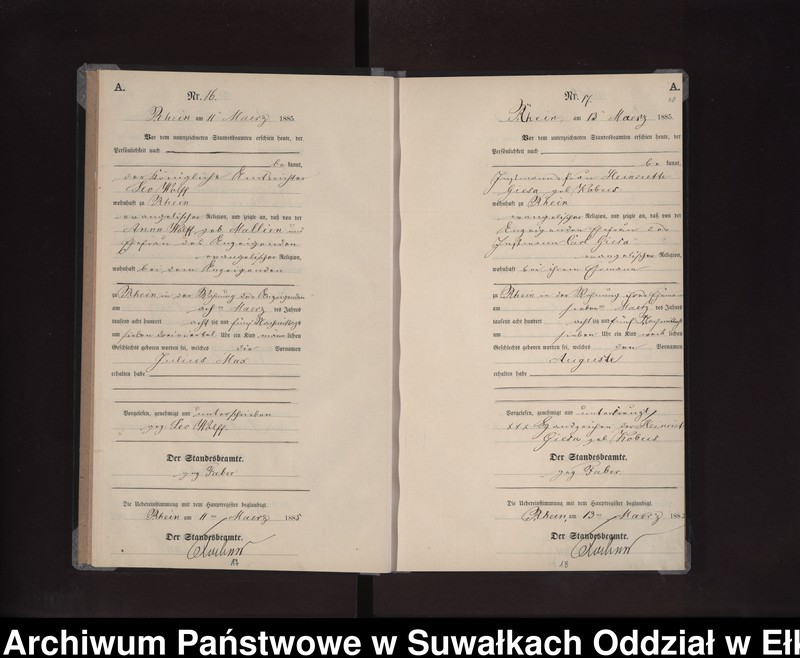 A.
Nr. 16.
Rhein am 11ten Maerz 1885.
Vor dem unterzeichneten Standesbeamten erschien heute, der
Persönlichkeit nach
bekannt,
der Königliche Amtsrichter
Leo Wolff
wohnhaft zu Rhein
evangelischer Religion, und zeigte an, daß von der
Anna Wolff geb. Ehefrau des Anzeigenden
evangelischer Religion,
wohnhaft bei dem Anzeigenden
zu Rhein in der Wohnung des Anzeigenden
am achten Maerz des Jahres
tausend acht hundert acht zig und fünf Nachmittags
um sieben Uhr ein Kind männlichen
Geschlechts geboren worden sei, welches die Vornamen
Julius Max
erhalten habe
Vorgelesen, genehmigt und unterschrieben
gez. Leo Wolff.
Der Standesbeamte.
gez. Faber
Die Uebereinstimmung mit dem Hauptregister beglaubigt.
Rhein am 11ten Maerz 1885
Der Standesbeamte.
A.
Nr. 17.
Rhein, am 13 Maerz 1885.
Vor dem unterzeichneten Standesbeamten erschien heute, der
Persönlichkeit nach
bekannt,
Instmannsfrau Henriette
Giesa geb. Kobus
wohnhaft zu Rhein
evangelischer Religion, und zeigte an, daß von der
Anzeigenden Ehefrau des
Instmann Carl Giesa
evangelischer Religion,
wohnhaft bei ihrem Ehemann
zu Rhein in der Wohnung ihres
am siebenten Maerz des Jahres
tausend acht hundert acht zig und fünf Nachmittags
um sieben Uhr ein Kind weiblichen
Geschlechts geboren worden sei, welches den Vornamen
Auguste
erhalten habe
Vorgelesen, genehmigt und unterkreuzt
xxx Handzeichen der Henriette
Giesa geb. Kobus
Der Standesbeamte.
gez. Faber.
Die Uebereinstimmung mit dem Hauptregister beglaubigt.
Rhein, am 13ten Maerz 188
Der Standesbeamte.
18
Archiwum Państwowe w Suwałkach Oddział w Ełk